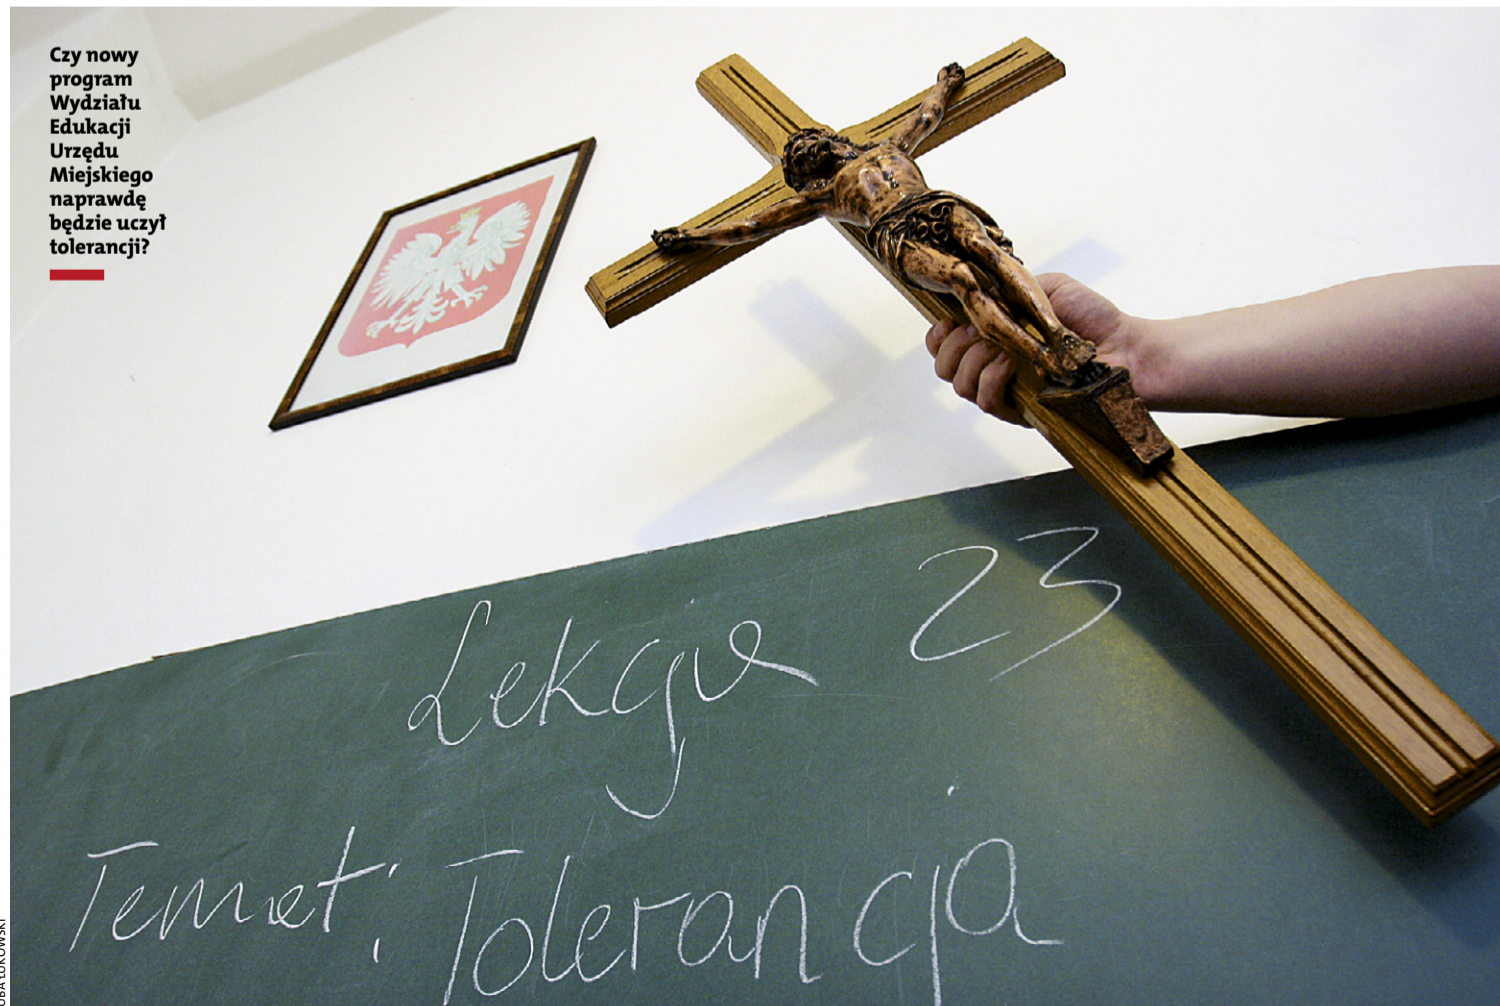 Czy nowy
program
Wydziału
Edukacji
Urzędu
Miejskiego
naprawdę
będzie uczył
tolerancji?
Lekcja 23
Temat: Tolerancja
ŁUKOWSKI